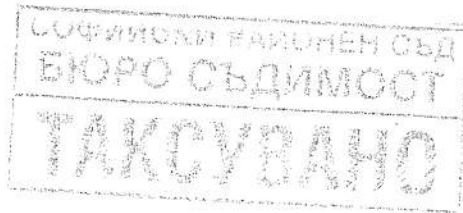 СОФИЙСКИ РАЙОНЕН СЪД
БЮРО СЪДИМОСТ
ТАКСУВАНО